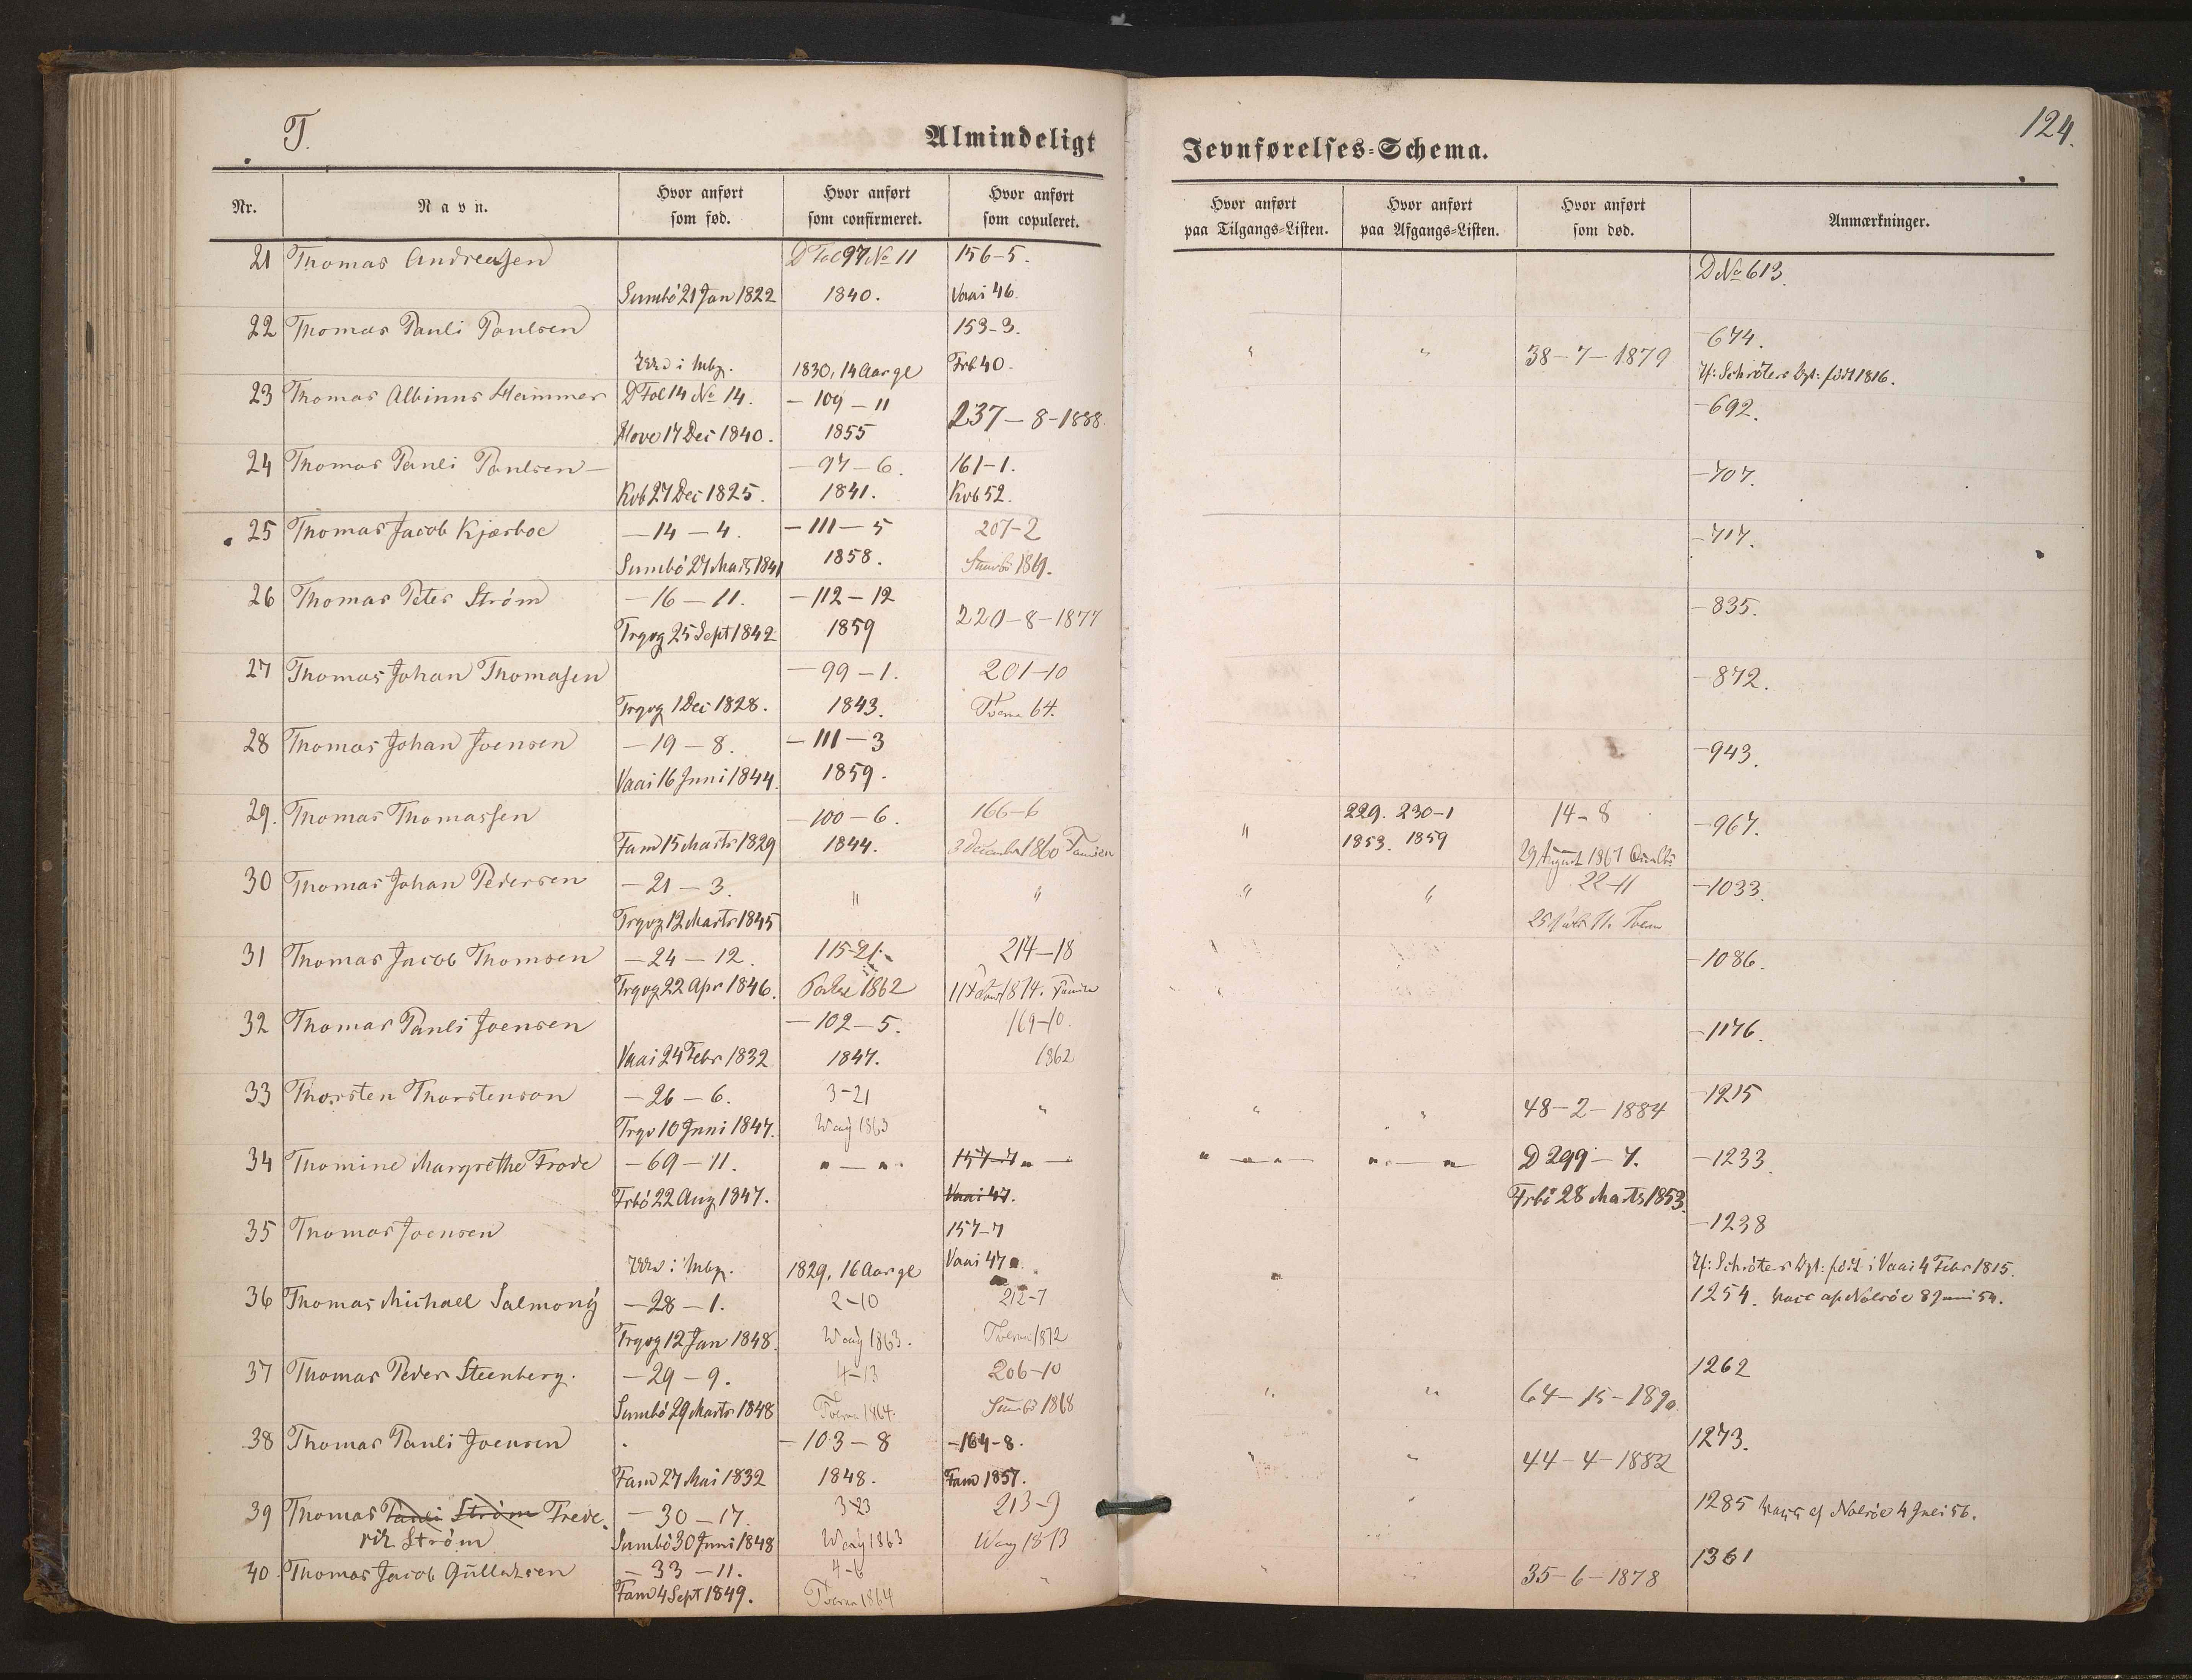 T.
Almindeligt
Jevnførelses-Schema.
124.
Nr.
Navn.
Hvor anført som fød.
Hvor anført som confirmeret.
Hvor anført som copuleret.
Hvor anført paa Tilgangs-Listen.
Hvor anført paa Afgangs-Listen.
Hvor anført som død.
Anmærkninger.
21 Thomas Andreasen D Fol 97 No 11 156-5. D No 613.
Sumbö 21 Jan 1822 1840. Vaai 46.
22 Thomas Pauli Poulsen 153-3. -674.
1830, 14 Aar gl Frb 40. " " 38-7-1879 Schröters født 1816.
23 Thomas Albinus Hammer D Fol 14 No 14. -109-11 -692.
Hove 17 Dec 1840. 1855 237-8-1888.
24 Thomas Pauli Poulsen- -97-6. 161-1. -707.
Kvb 27 Dec 1825. 1841. Kvb 52.
25 Thomas Jacob Kjærboe -14-4. -111-5 207-2 -717.
Sumbö 27 Marts 1841 1858. Sumbö 1869.
26 Thomas Peter Ström -16-11. -112-12 220-8-1877 -835.
Trgvg 25 Sept 1842 1859
27 Thomas Johan Thomasen -99-1. 201-10 -872.
Trgvg 1 Dec 1828. 1843. 64.
28 Thomas Johan Joensen -19-8. -111-3 -943.
Vaai 16 Juni 1844. 1859.
29. Thomas Thomassen -100-6. 166-6 229. 230-1 14-8 -967.
Fam 15 Marts 1829 1844. 3 December 1860 Famien " 1853. 1859 29 August 1867
30 Thomas Johan Pedersen -21-3. " " " " 22-11 -1033.
Trgvg 12 Marts 1845
31 Thomas Jacob Thomsen -24-12. 115-21. 214-18 -1086.
Trgvg 22 Apr 1846. 1862 1874.
32 Thomas Pauli Joensen -102-5. 169-10. -1176.
Vaai 24 Febr 1832 1847. 1862
33 Thorsten Thorstenson -26-6. 3-21 " " " 48-2-1884 -1215
Trgv 10 Juni 1847. Waaj 1863
34 Thomine Margrethe Frode -69-11. "-". 157-7 "- "-"- "-" D 299-7. -1233.
Frbö 22 Aug 1847. Vaai 47. Frbö 28 Marts 1853.
35 Thomas Joensen 157-7 -1238
1829, 16 Aar gl Vaai 47 Schröters født i Vaai 4 Febr 1815.
36 Thomas Michael Salmony -28-1. 2-10 212-7 1254. vacc af Nolsöe 8 Juni 54.
Trgvg 12 Jan 1848. Waaj 1863. 1872
37 Thomas Peder Steenberg. -29-9. 4-13 206-10 1262
Sumbö 29 Marts 1848 1864. Sumbö 1868 " " 64-15-1890
38 Thomas Pauli Joensen -103-8 -164-8. 1273.
Fam 27 Mai 1832 1848. Fam 1857. " " 44-4-1882
39 Thomas Pauli Ström Frede- -30-17. 3-23 213-9 1285 vacc af Nolsöe 4 Juli 56.
rik Ström Sumbö 30 Juni 1848 Waaj 1863 Waaj 1873
40 Thomas Jacob Gullaksen -33-11. 4-6 " " 35-6-1878 1361
Fam 4 Sept 1849. 1864